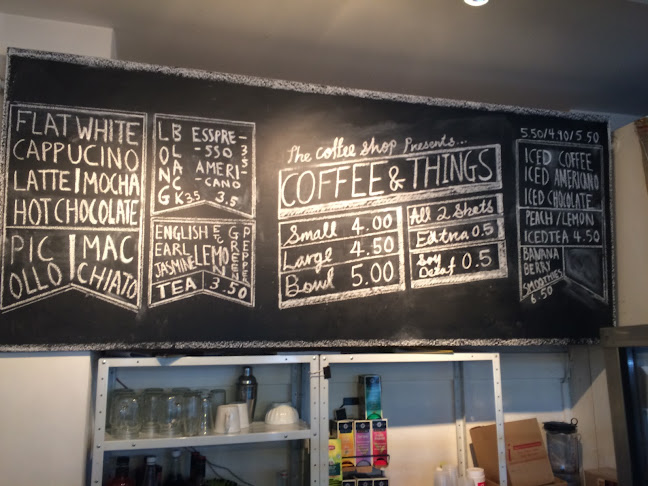 FLAT WHITE
CAPPUCINO
LATTE/MOCHA
HOT CHOCOLATE
PIC
OLLO
MAC
CHIATO
LONG
BLACK
3.5
ESSPRE-
-SSO 3.5
AMERI-
-CANO
3.5
ENGLISH
EARL
JASMINE
ETC
LEMON
GREEN
PEPPER
TEA 3.50
The coffee shop Presents...
COFFEE & THINGS
Small 4.00
Large 4.50
Bowl 5.00
All 2 Shots
Extra 0.5
Soy
Decaf 0.5
5.50/4.90/5.50
ICED COFFEE
ICED AMERICANO
ICED CHOCOLATE
PEACH/LEMON
ICED TEA 4.50
BANANA
BERRY
SMOOTHIES
6.50